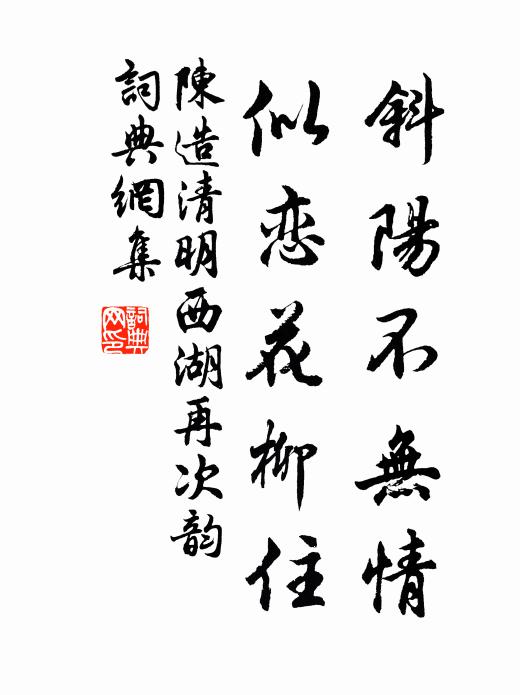 斜陽不無情
似恋花柳住
陳造清明西湖再次韵
詞典網集
詞典网印